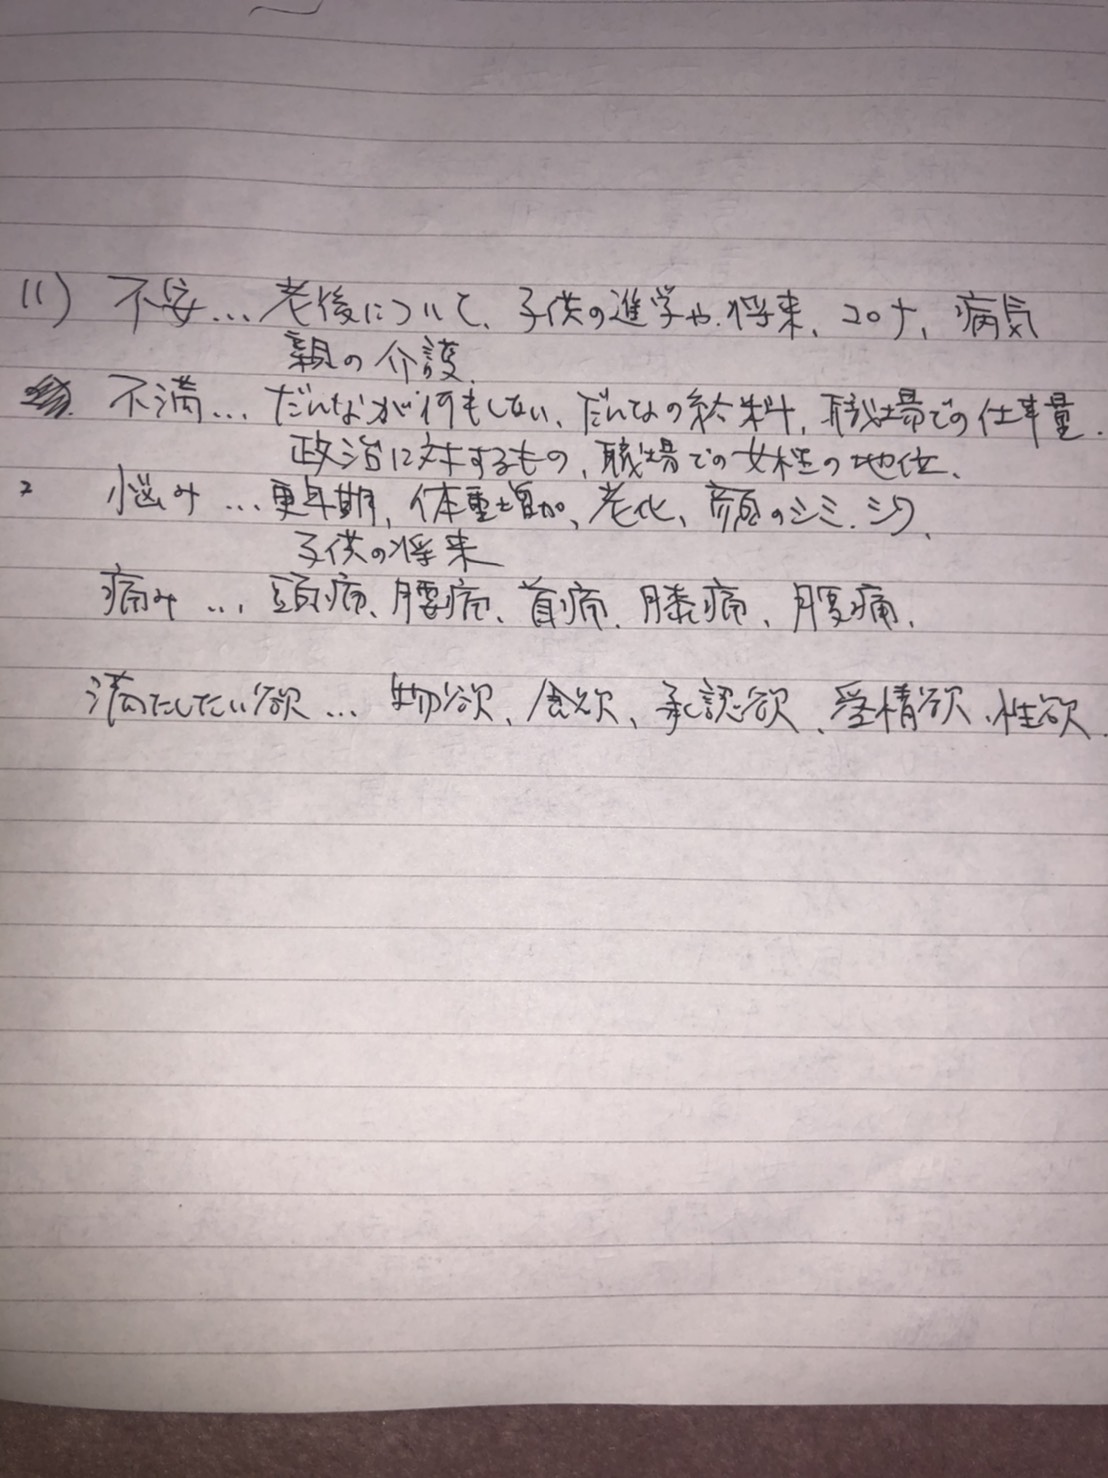 (1) 不安... 老後について、子供の進学や、将来、コロナ、病気
親の介護、
不満... だんなが何もしない、だんなの給料、職場での仕事量、
政治に対するもの、職場での女性の地位、
悩み... 更年期、体重増加、老化、顔のシミ、シワ、
子供の将来
痛み... 頭痛、腰痛、首痛、膝痛、腹痛、
満たしたい欲... 物欲、食欲、承認欲、愛情欲、性欲、